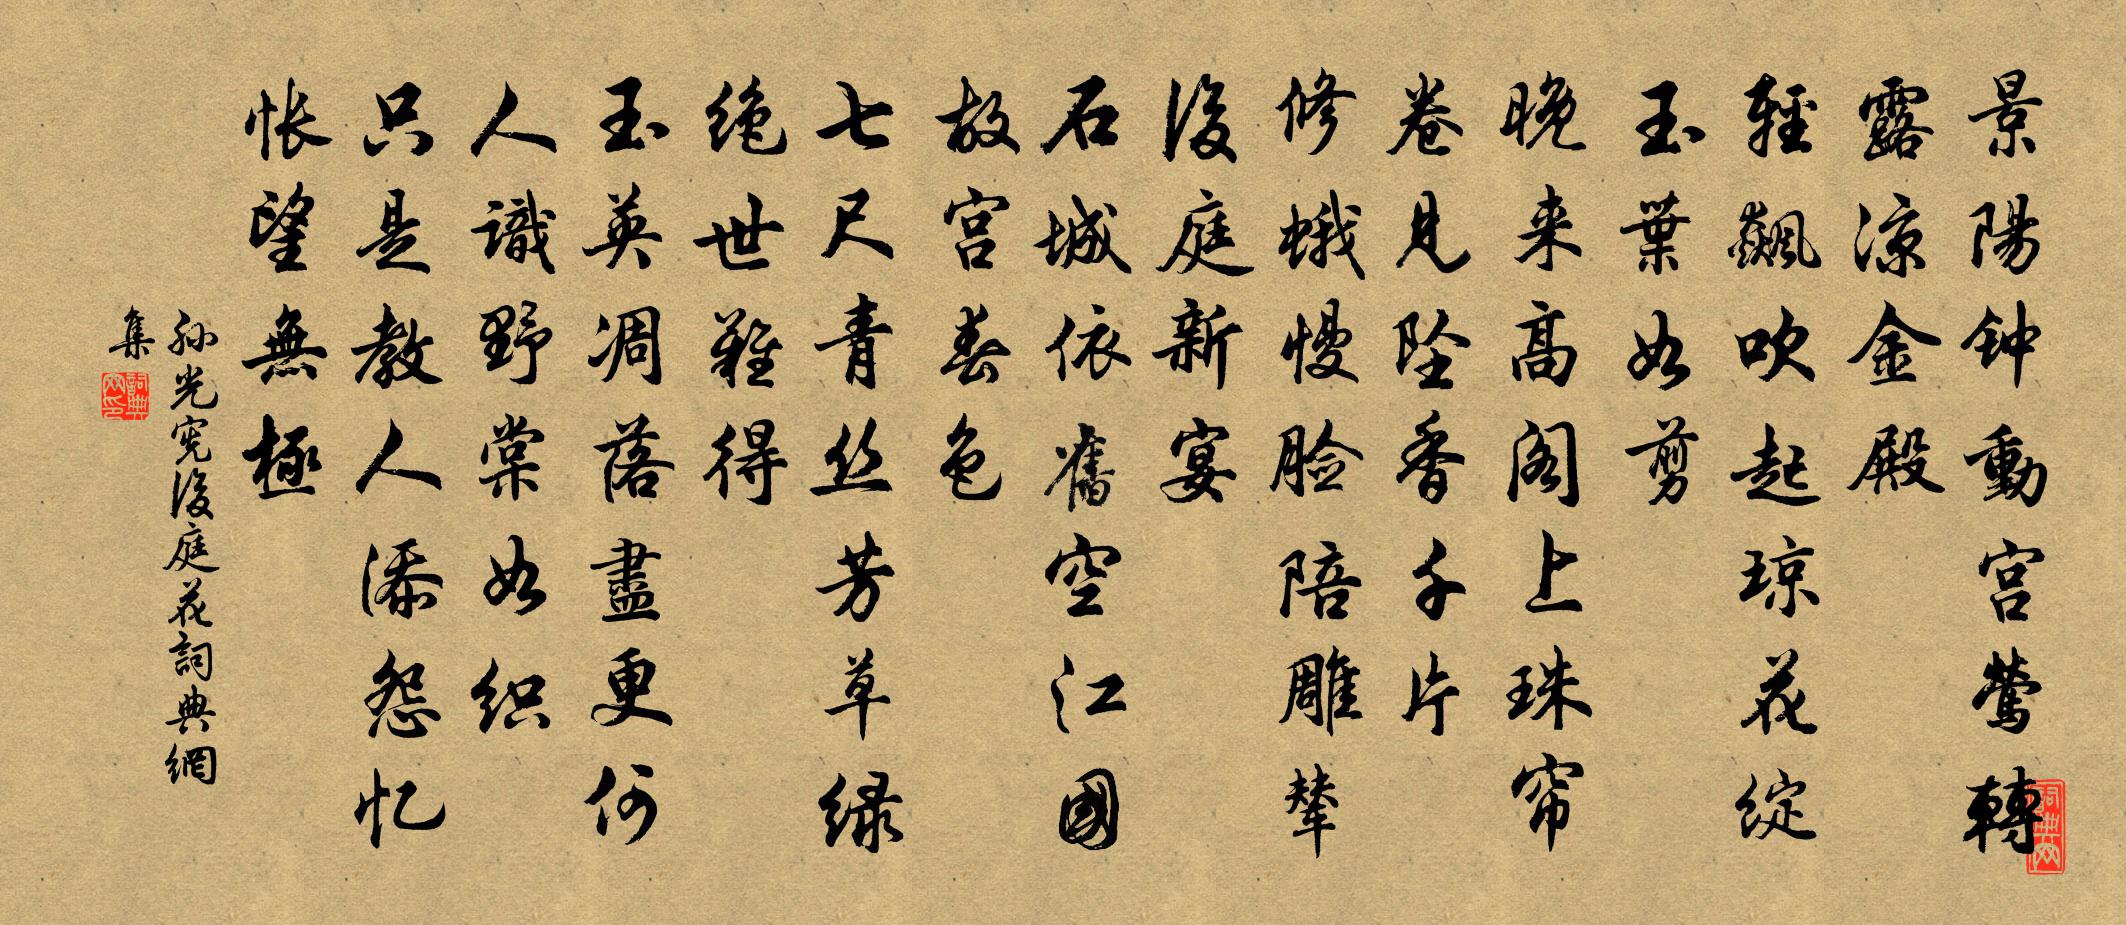 景陽钟動宫莺轉
露涼金殿
輕飆吹起琼花綻
玉葉如剪
晚来高阁上珠帘
卷見坠香千片
修蛾慢脸陪雕辇
後庭新宴
石城依舊空江國
故宫春色
七尺青丝芳草绿
绝世難得
玉英凋落盡更何
人識野棠如织
只是教人添怨忆
怅望無極
孙光宪後庭花詞典網
集
詞典网
詞典网印